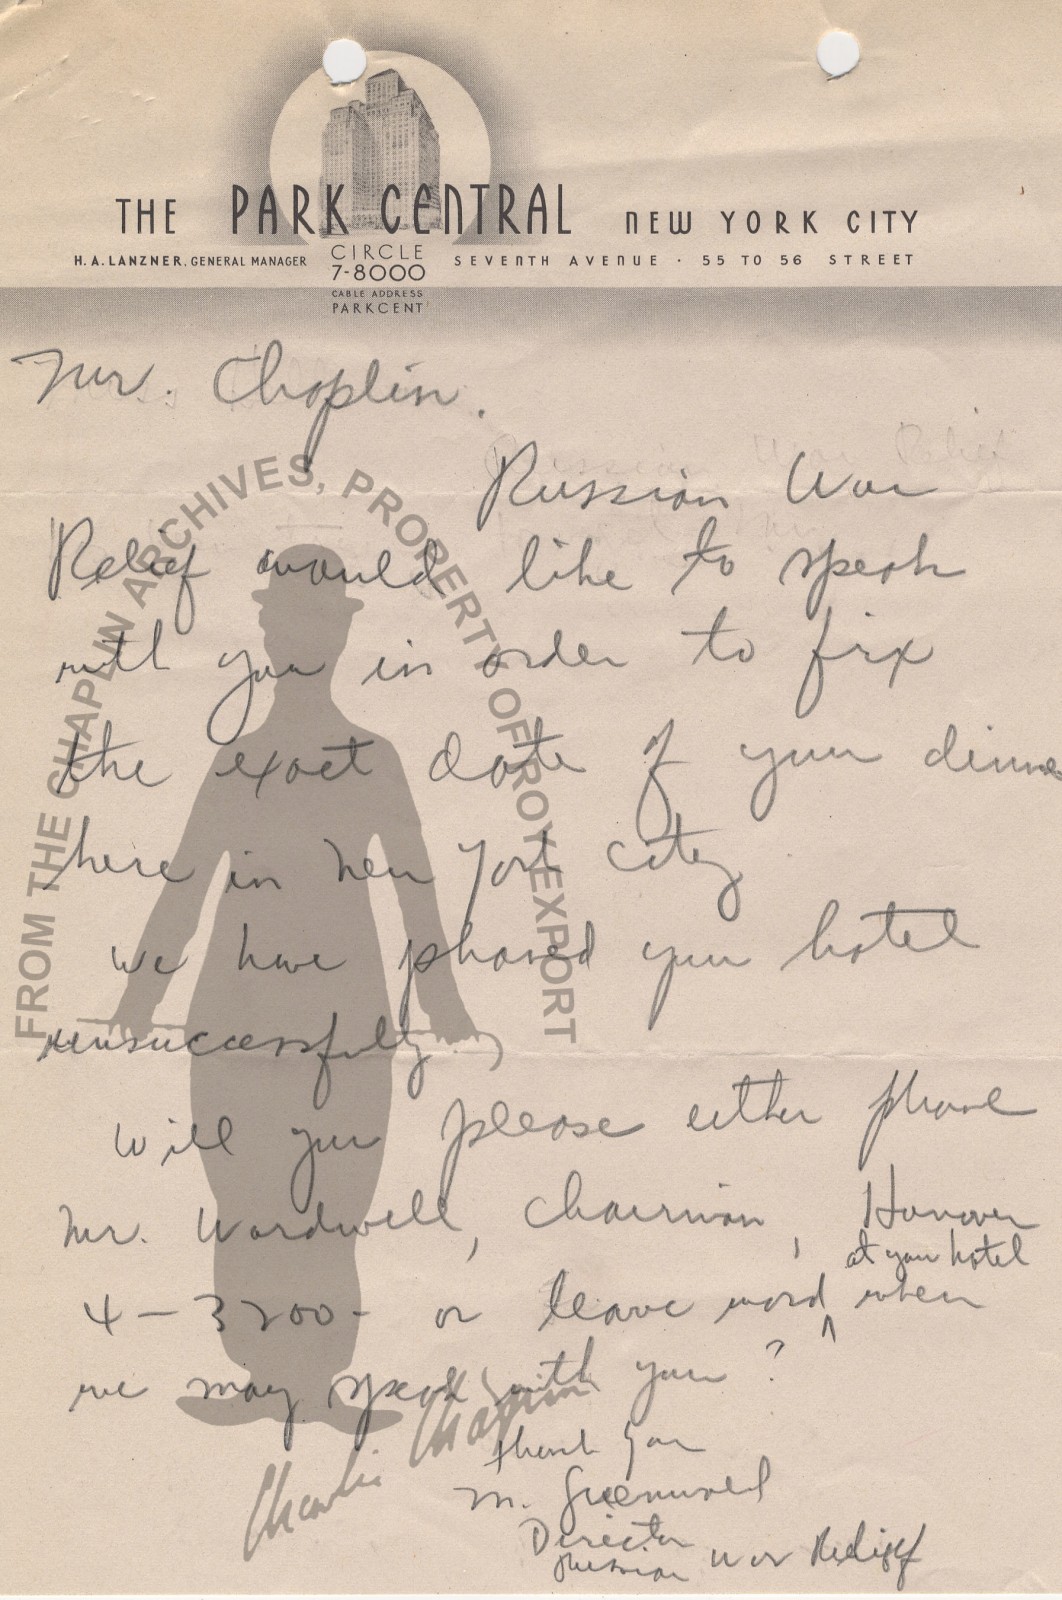 THE PARK CENTRAL NEW YORK CITY
H. A. LANZNER, GENERAL MANAGER
CIRCLE
7-8000
CABLE ADDRESS
PARKCENT
SEVENTH AVENUE · 55 TO 56 STREET
Mr. Chaplin.
Russian War
Relief would like to speak
with you in order to fix
the exact date of your dinne
here in New York City
We have phoned your hotel
unsuccessfully.
Will you please either phone
Mr. Wardwell, Chairman, Hanover
at your hotel
4-3200- or leave word ^ when
we may speak with you?
Thank you
M.
Director
Russian War Relief
FROM THE CHAPLIN ARCHIVES, PROPERTY OF ROY EXPORT
Charlie Chaplin